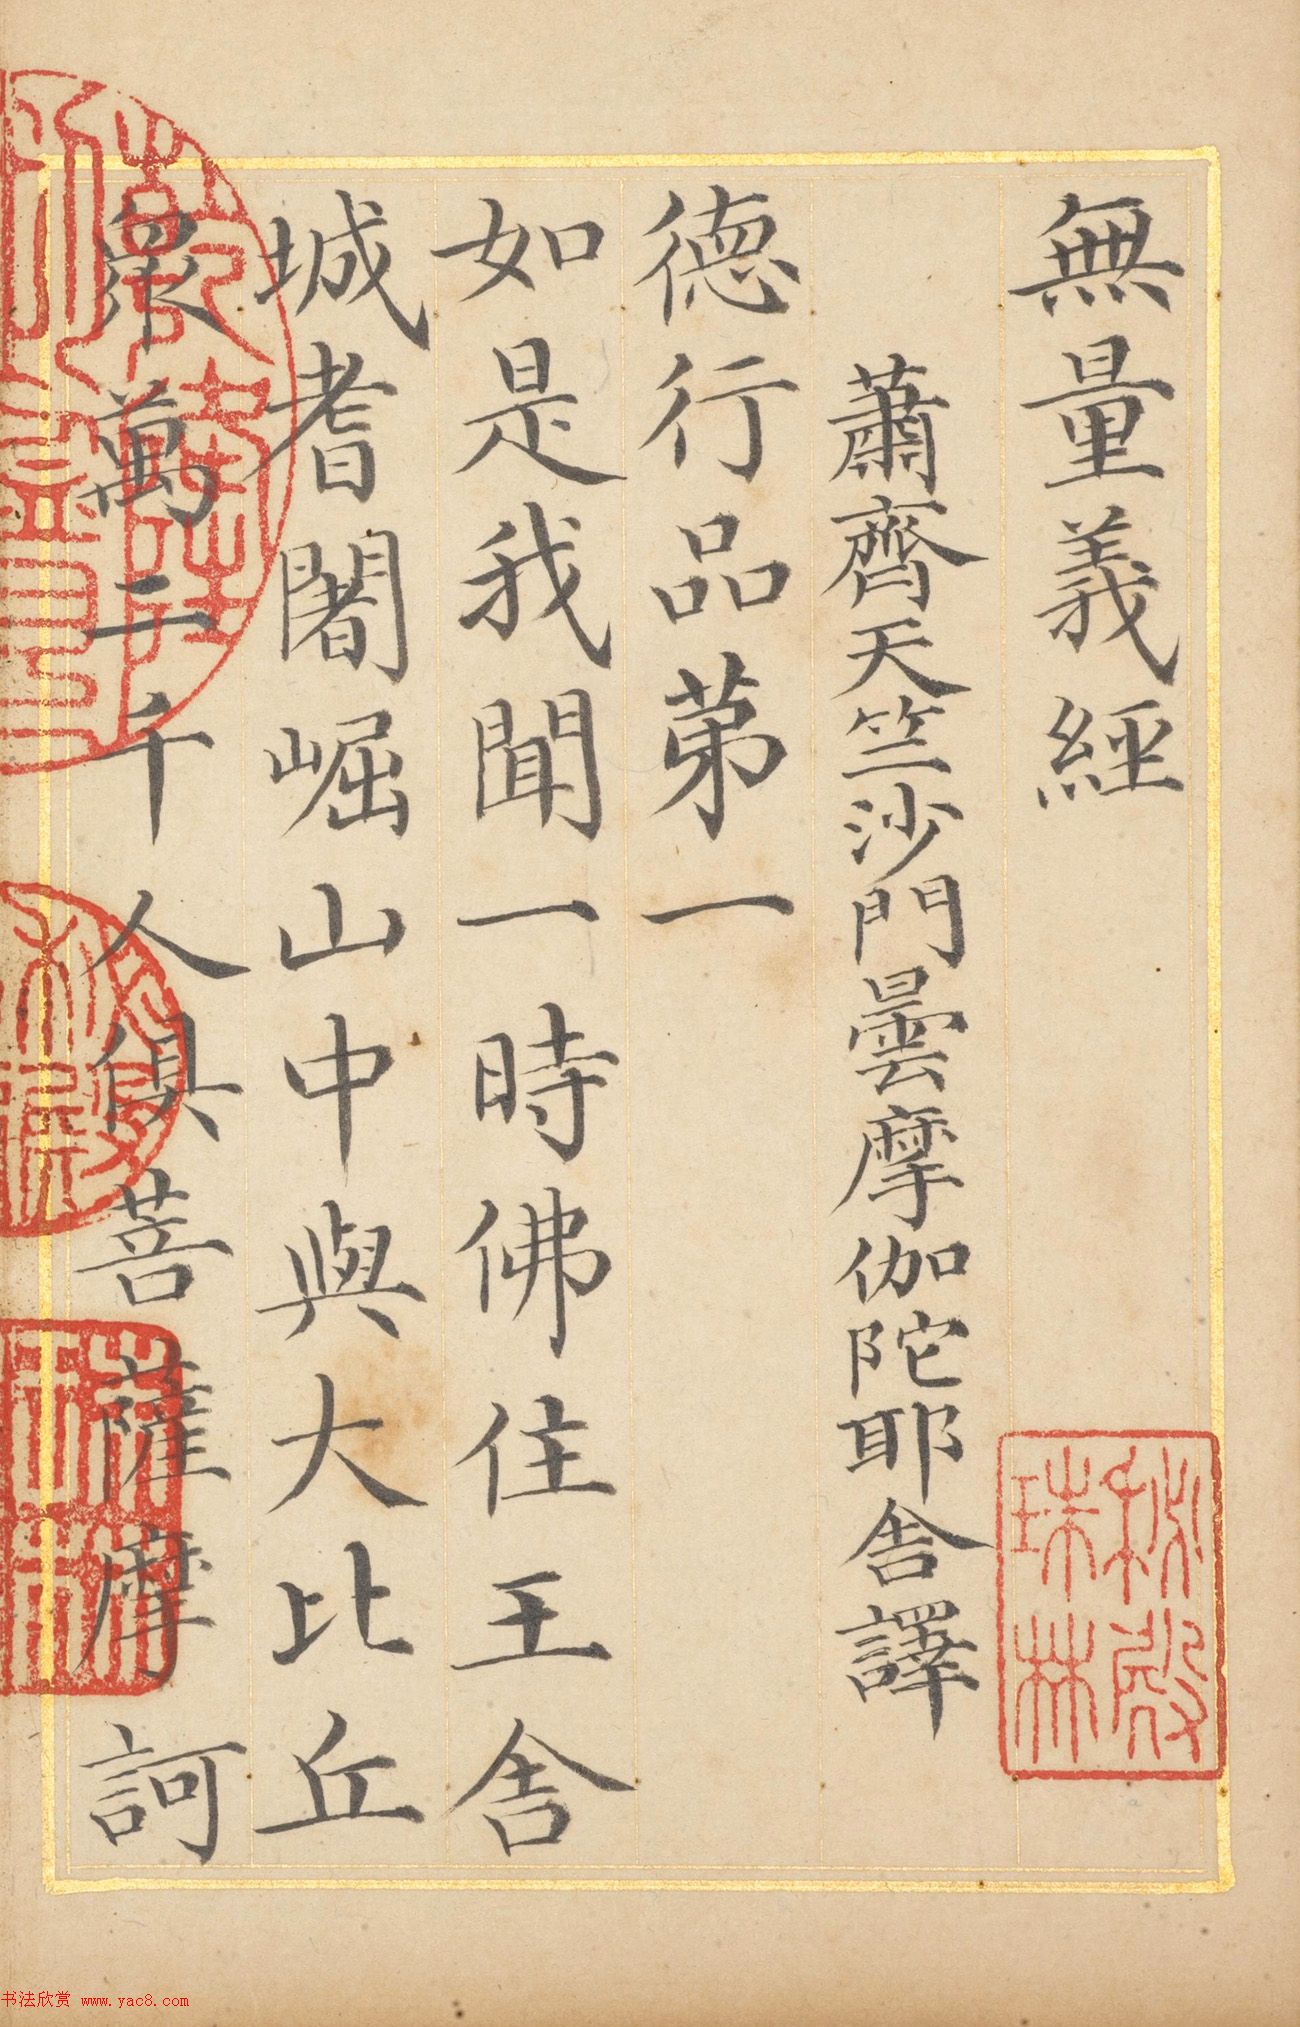 無量義經
蕭齊天竺沙門曇摩伽陀耶舎譯
德行品苐一
如是我聞一時佛住王舎
城耆闍崛山中與大比丘
眾萬二千人俱菩薩摩訶
秘殿
珠林
书法欣赏 www.yac8.com